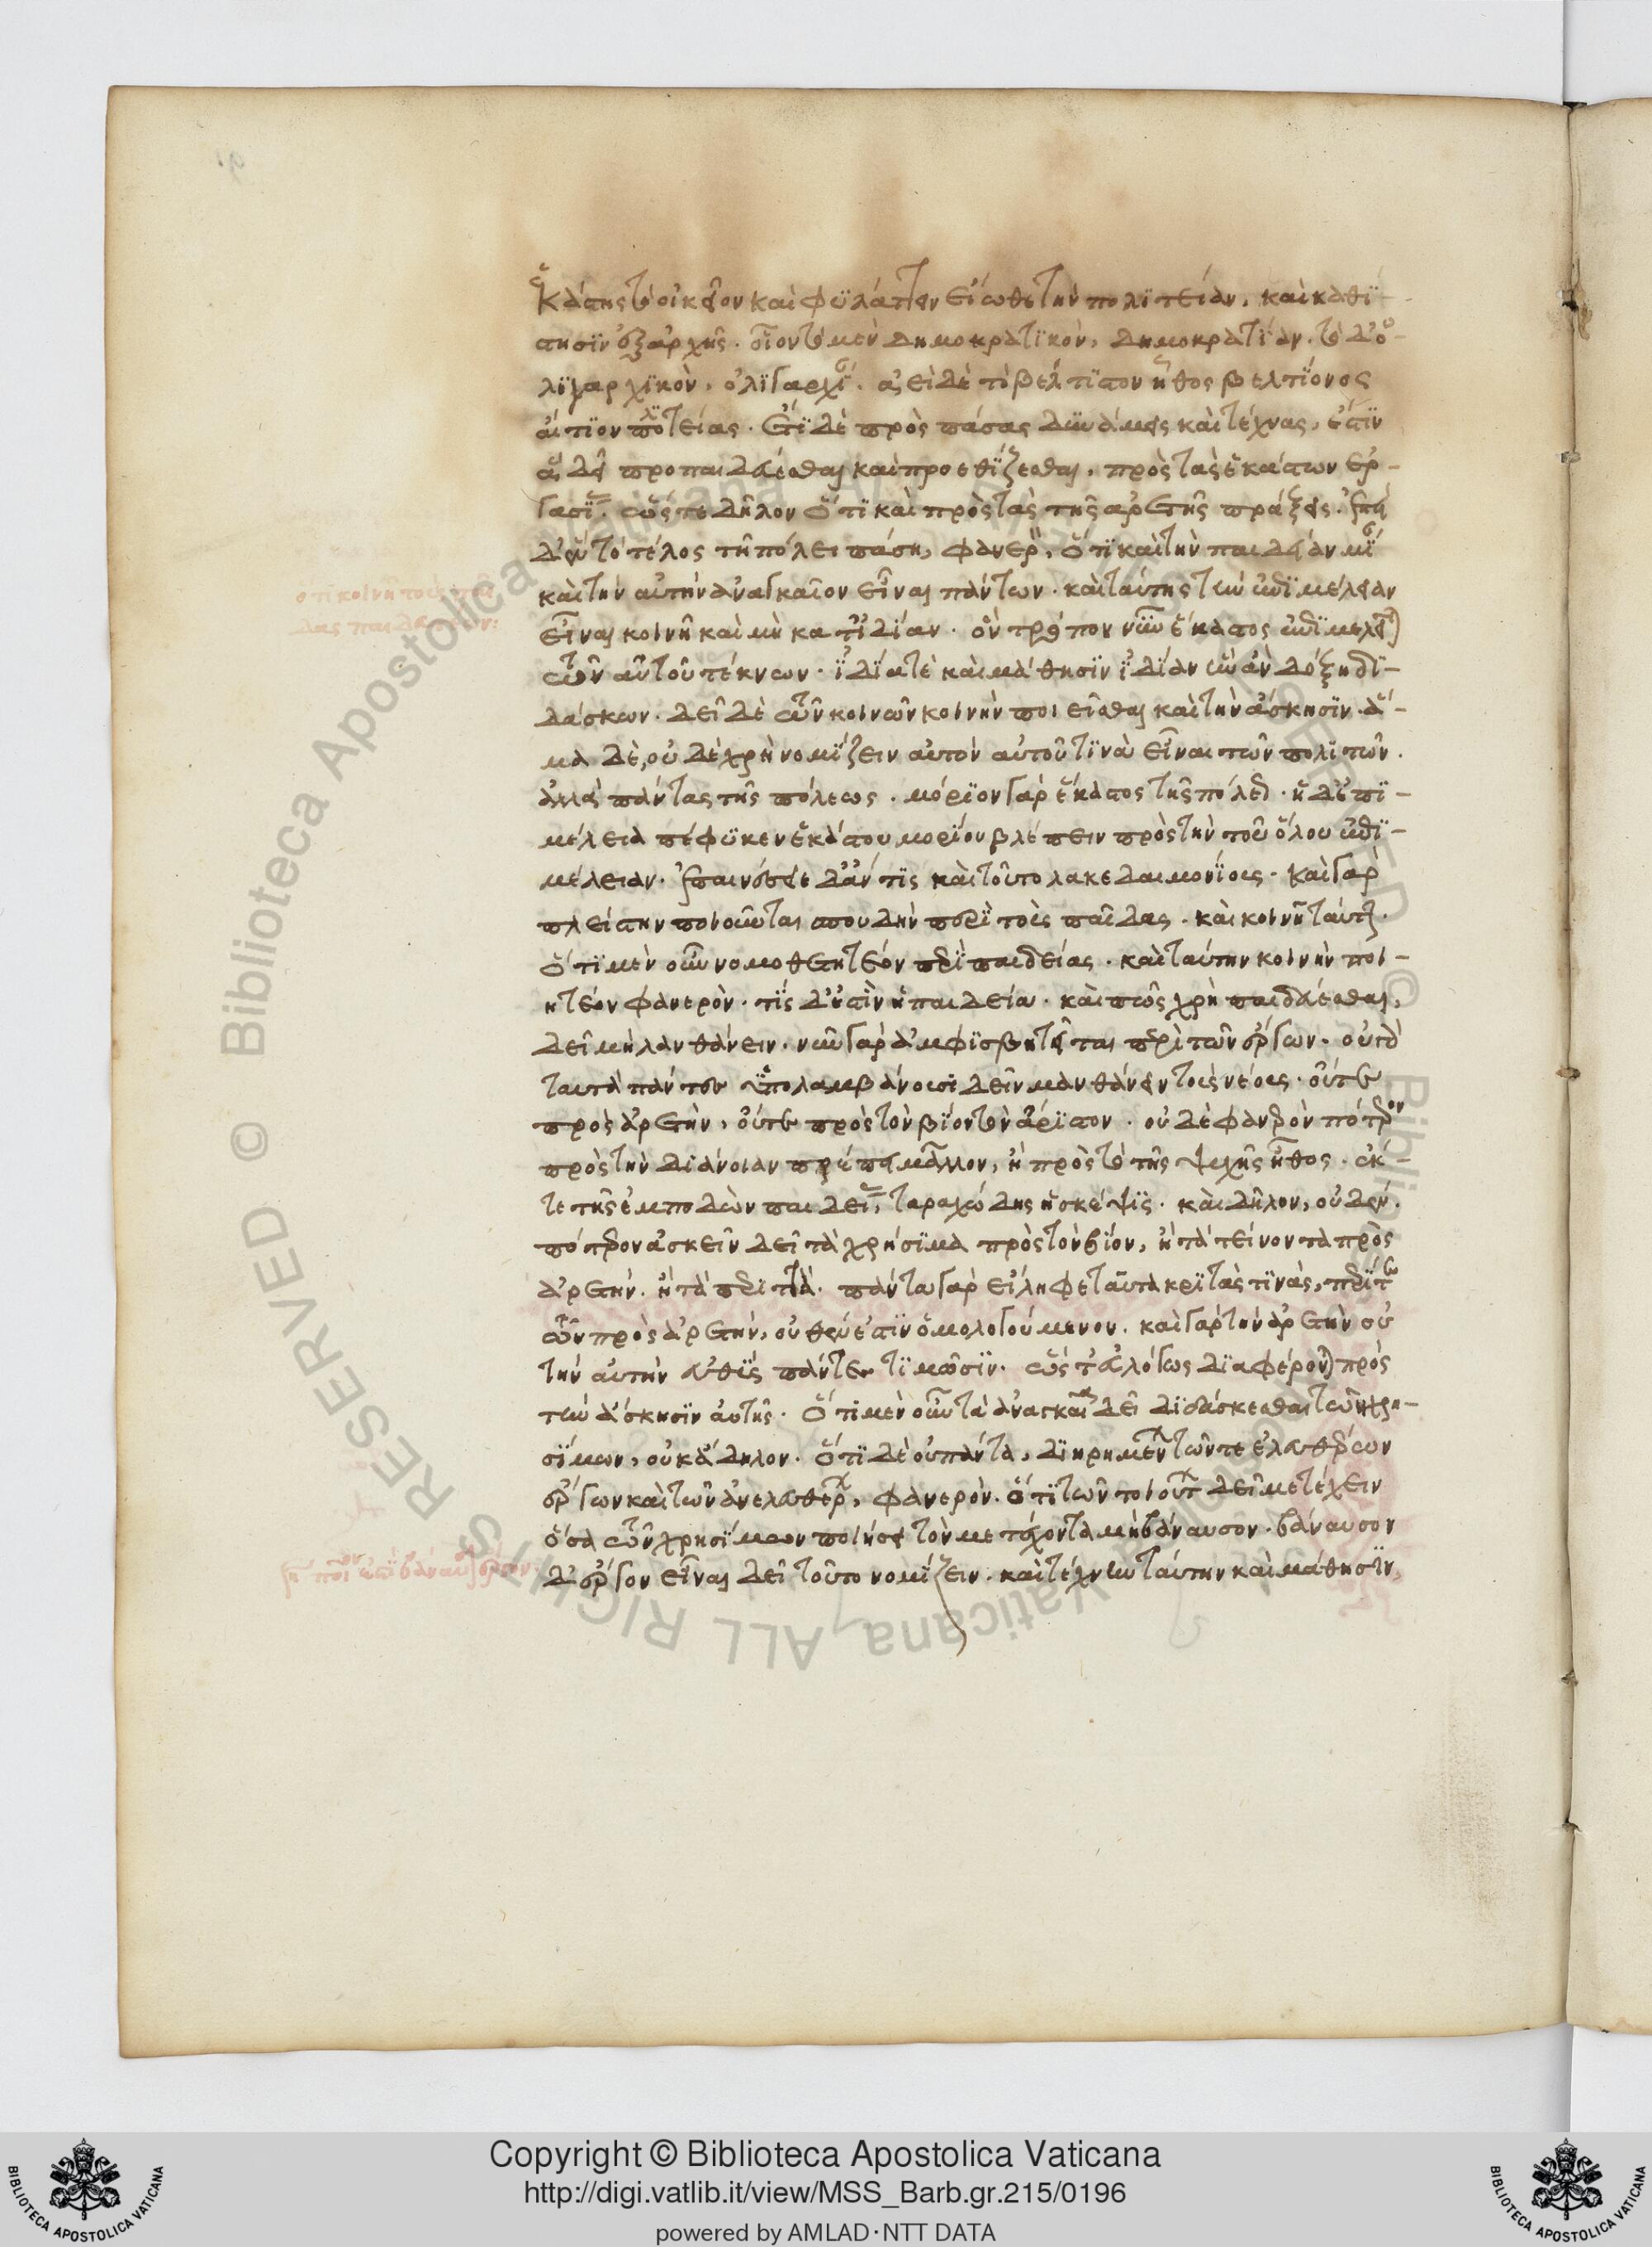 ἑκάστης τὸ οἰκεῖον καὶ φυλάττειν εἴωθε τὴν πολιτείαν, καὶ καθί-
στησιν ἐξ αρχῆς. οἷον τὸ μὲν δημοκρατικὸν, δημοκρατίαν. τὸ δ' ὀ-
λιγαρχικὸν, ὀλιγαρχίαν. ἀεὶ δὲ τὸ βέλτιστον ἦθος βελτίονος
αἴτιον πολιτείας. ἔτι δὲ πρὸς πάσας δυνάμεις καὶ τέχνας, ἐστὶν
ἃ δεῖ προπαιδεύεσθαι καὶ προεθίζεσθαι, πρὸς τὰς ἑκάστων ἐρ-
γασίας. ὥστε δῆλον ὅτι καὶ πρὸς τὰς τῆς αρετῆς πράξεις. ἐπεὶ
δ' ἓν τὸ τέλος τῆ πόλει πάση, φανερὸν, ὅτι καὶ τὴν παιδείαν μίαν
καὶ τὴν αὐτὴν ἀναγκαῖον εἶναι πάντων. καὶ ταύτης τὴν ἐπιμέλειαν
εἶναι κοινὴν καὶ μὴ κατ' ἰδίαν. ὃν τρόπον νῦν ἕκαστος ἐπιμελεῖται
τῶν αὑτοῦ τέκνων. ἰδία τὲ καὶ μάθησιν ἰδίαν ἣν ἂν δόξη δι-
δάσκων. δεῖ δὲ τῶν κοινῶν κοινὴν ποιεῖσθαι καὶ τὴν ἄσκησιν. ἅ-
μα δὲ, οὐδὲ χρὴ νομίζειν αὐτὸν αὑτοῦ τινὰ εἶναι τῶν πολιτῶν.
ἀλλὰ πάντας τῆς πόλεως. μόριον γὰρ ἕκαστος τῆς πόλεως. ἡ δ' ἐπι-
μέλεια πέφυκεν ἑκάστου μορίου βλέπειν πρὸς τὴν τοῦ ὅλου ἐπι-
μέλειαν. ἐπαινέσειε δ' ἄν τις καὶ τοῦτο λακεδαιμονίους. καὶ γὰρ
πλείστην ποιοῦνται σπουδὴν περὶ τοὺς παῖδας. καὶ κοινῆ ταύτην.
ὅτι μὲν οὖν νομοθετητέον περὶ παιδείας. καὶ ταύτην κοινὴν ποι-
ητέον φανερὸν. τίς δ' ἐστὶν ἡ παιδεία. καὶ πῶς χρὴ παιδεύεσθαι,
δεῖ μὴ λανθάνειν. νῦν γὰρ ἀμφισβητεῖται περὶ τῶν ἔργων. οὐ γὰρ
ταυτὰ πάντες ὑπολαμβάνουσι δεῖν μανθάνειν τοὺς νέους. οὔτε
πρὸς ἀρετὴν, οὔτε πρὸς τὸν βίον τὸν ἄριστον. οὐδὲ φανερὸν πότερον
πρὸς τὴν διάνοιαν πρέπει μᾶλλον, ἢ πρὸς τὸ τῆς ψυχῆς ἦθος. ἐκ-
τε τῆς ἐμποδὼν παιδείας, ταραχώδης ἡ σκέψις. καὶ δῆλον, οὐδὲν.
πότερον ἀσκεῖν δεῖ τὰ χρήσιμα πρὸς τὸν βίον, ἢ τὰ τείνοντα πρὸς
ἀρετήν. ἢ τὰ περιττὰ. πάντα γὰρ εἴληφε ταῦτα κριτὰς τινὰς, περὶ τε
τῶν πρὸς ἀρετήν, οὐθέν ἐστιν ὁμολογούμενον. καὶ γὰρ τὴν ἀρετὴν οὐ
τὴν αὐτὴν εὐθὺς πάντες τιμῶσιν. ὥστ' εὐλόγως διαφέρονται πρὸς
τὴν ἄσκησιν αὐτῆς. ὅτι μὲν οὖν τὰ ἀναγκαῖα δεῖ διδάσκεσθαι τῶν χρη-
σίμων, οὐκ ἄδηλον. ὅτι δὲ οὐ πάντα, διηρημένων τῶν τε ἐλευθέρων
ἔργων καὶ τῶν ἀνελευθέρων, φανερὸν. ὅτι τῶν τοιούτων δεῖ μετέχειν
ὅσα τῶν χρησίμων ποιήσει τὸν μετέχοντα μὴ βάναυσον. βάναυσον
δ' ἔργον εἶναι δεῖ τοῦτο νομίζειν. καὶ τέχνην ταύτην καὶ μάθησιν,